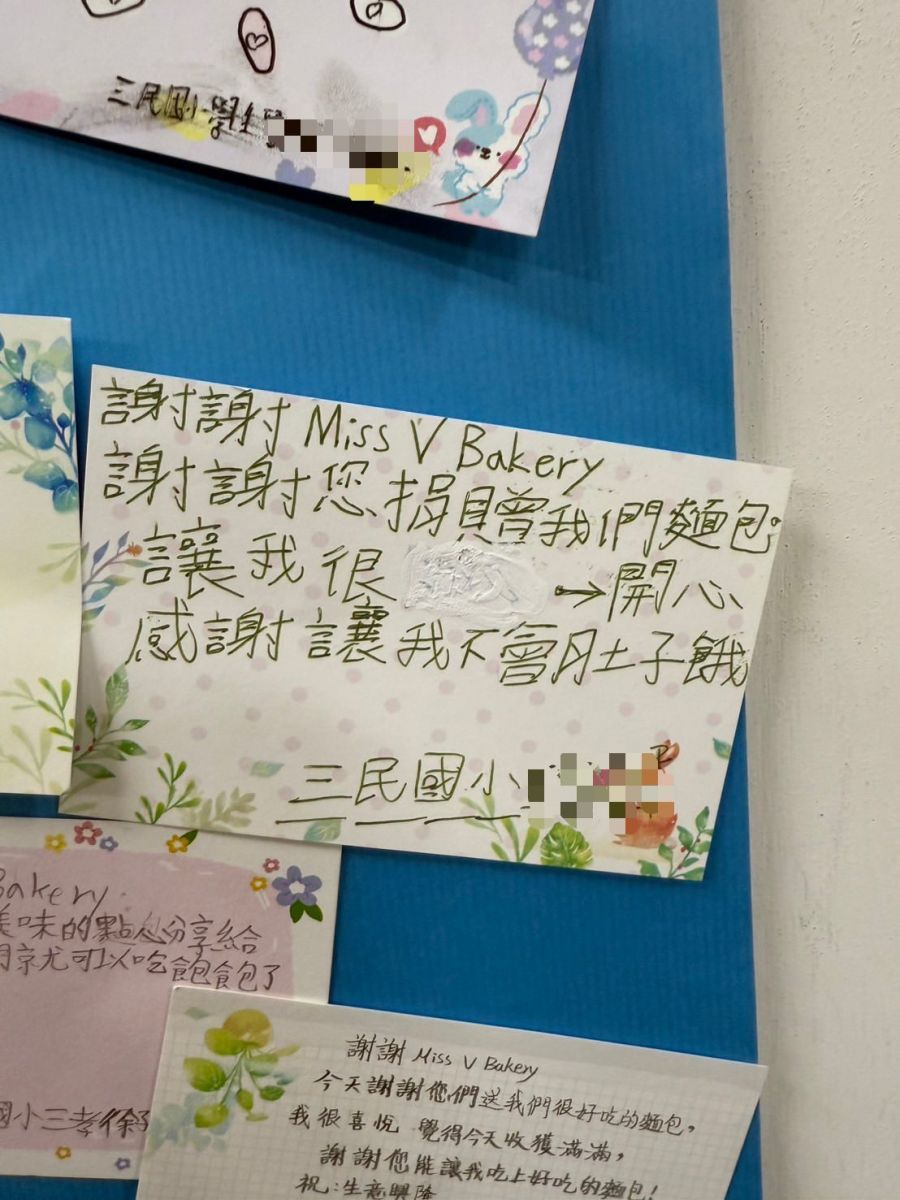 三民國小學生
謝謝 Miss V Bakery
謝謝您捐贈我們麵包。
讓我很 →開心
感謝讓我不會肚子餓
三民國小
Bakery.
美味的點心分享給
就可以吃飽飽了
國小三孝徐
謝謝 Miss V Bakery
今天謝謝您們送我們很好吃的麵包,
我很喜悅 覺得今天收獲滿滿,
謝謝您能讓我吃上好吃的麵包!
祝:生意興隆